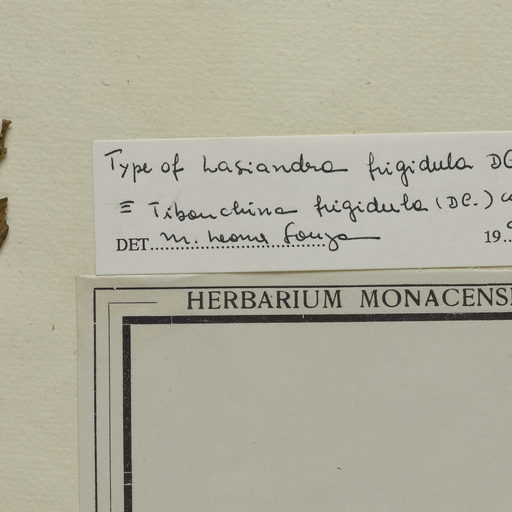 Type of Lasiandra frigidula DC
≡ Tibouchina frigidula (DC.) Co
DET. M. Leonor Souza 19
HERBARIUM MONACENSI